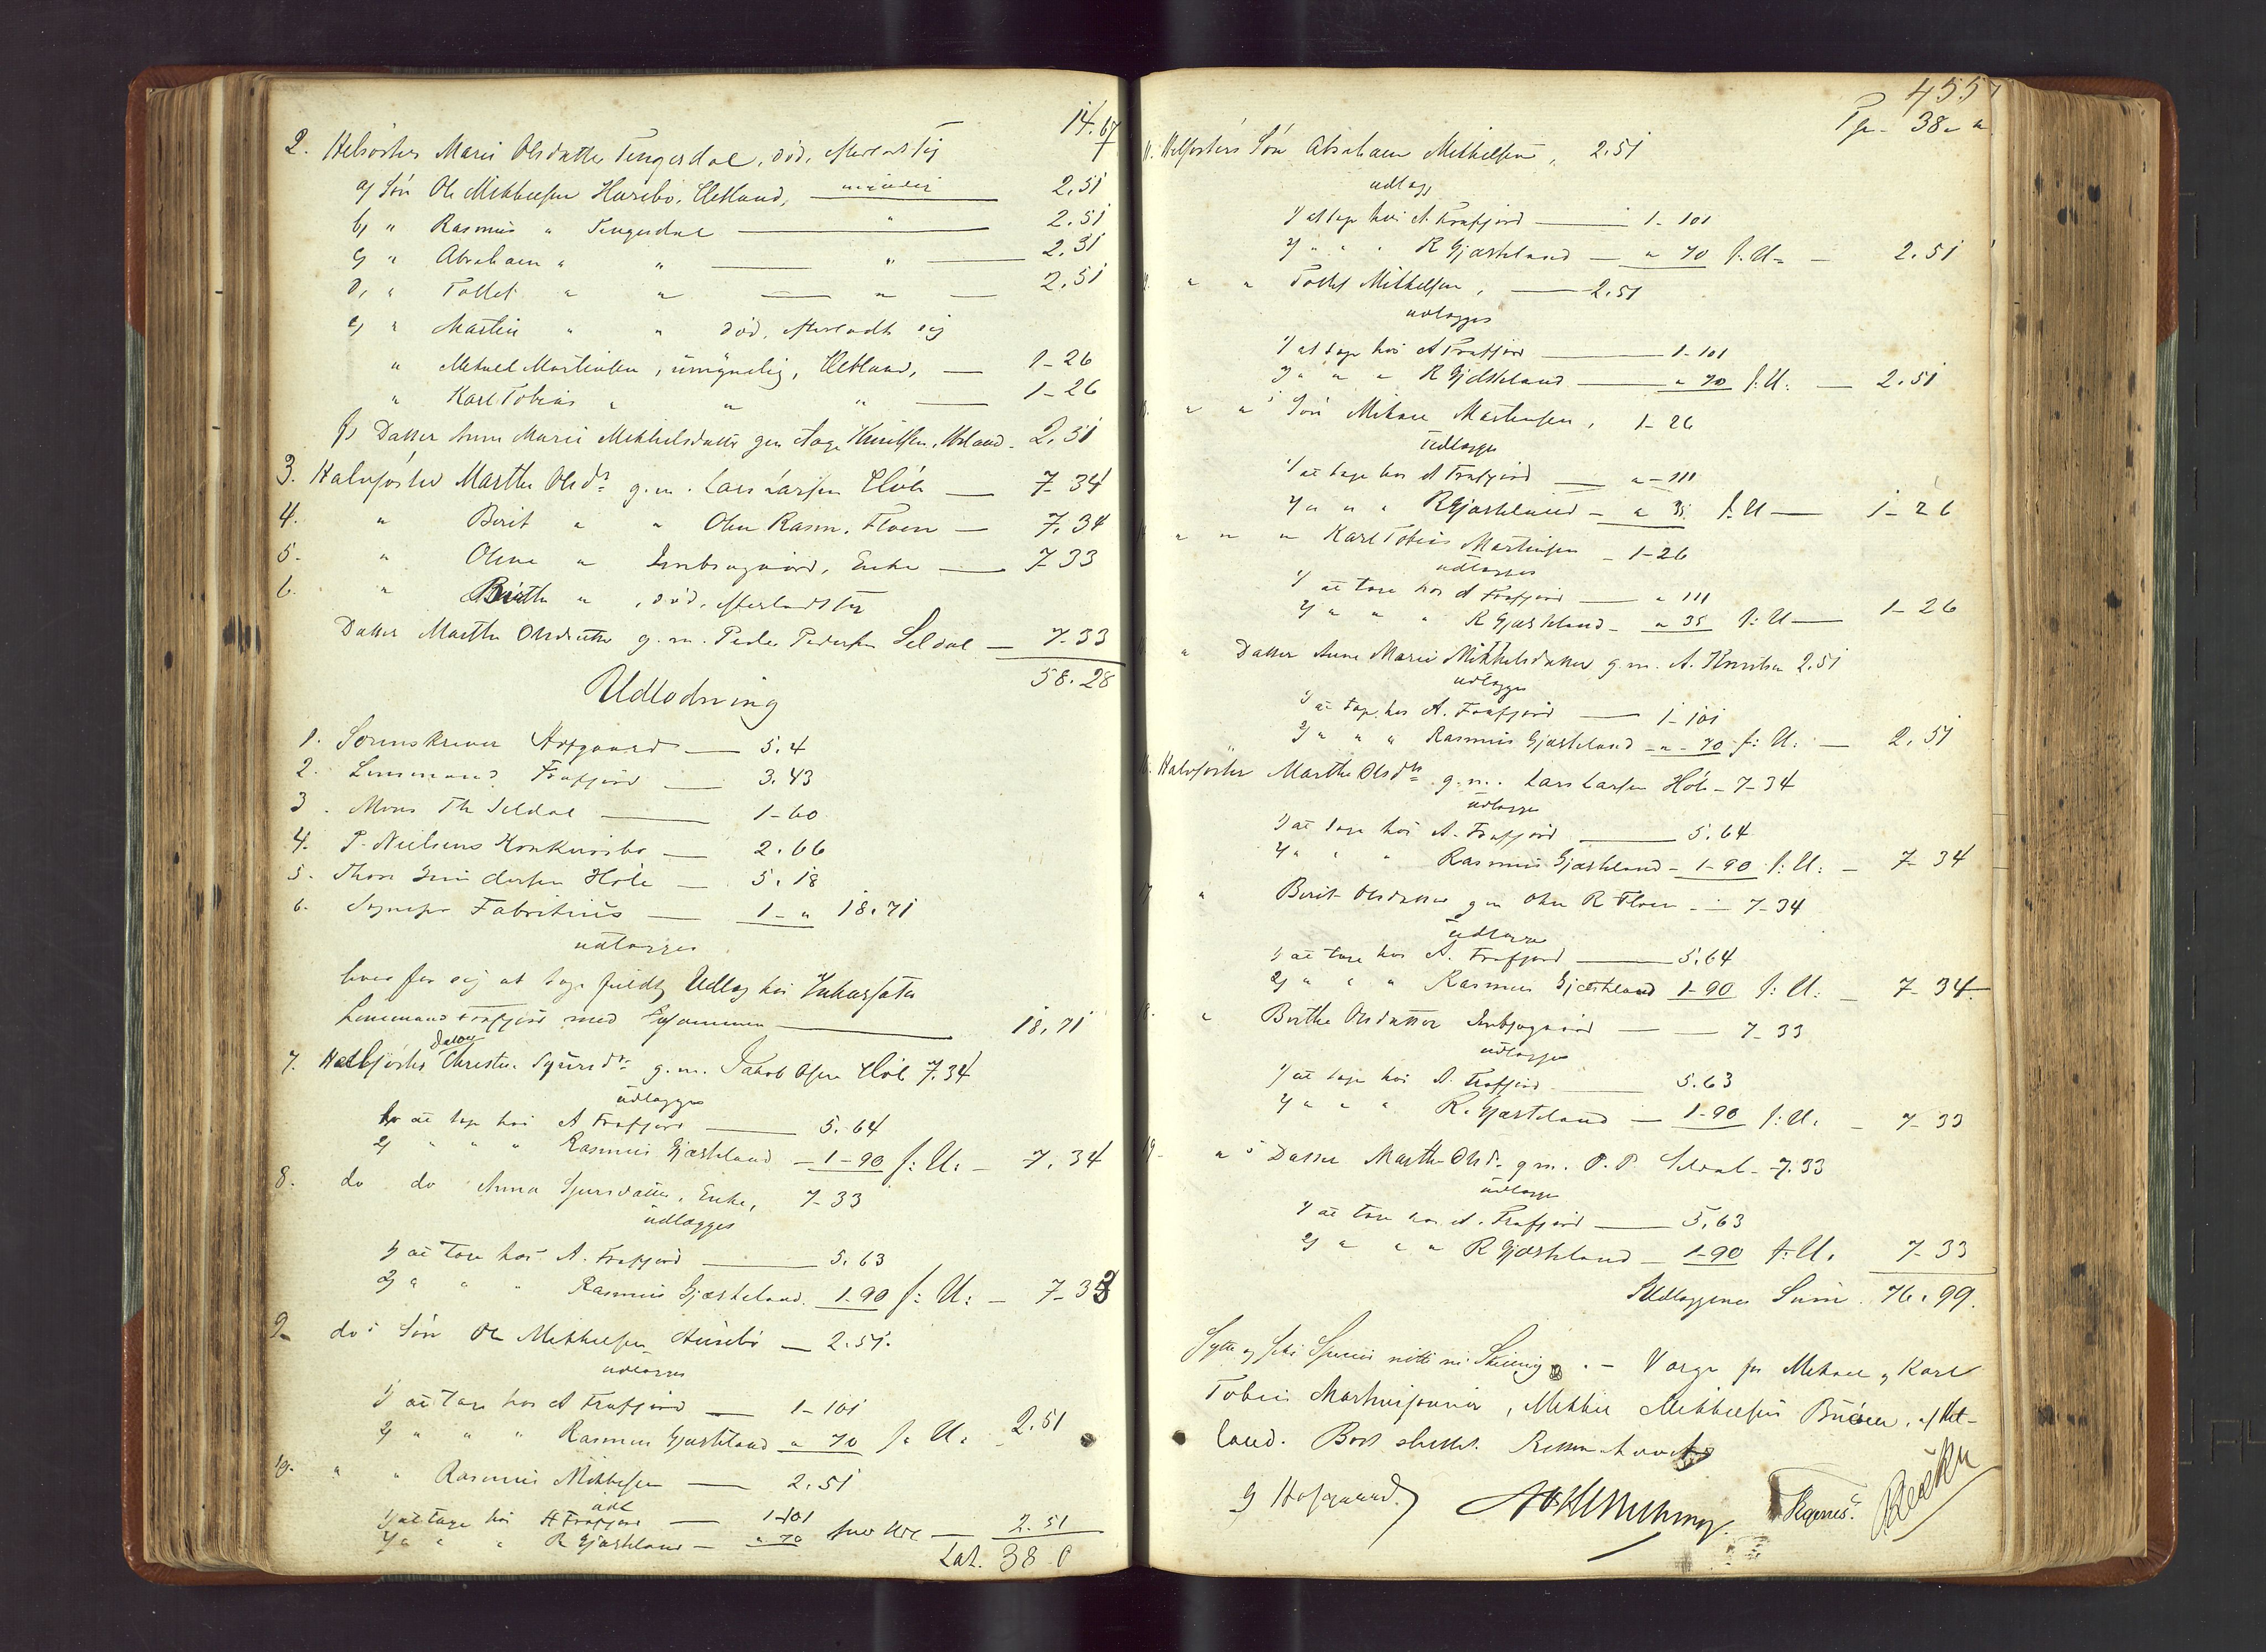 14.67
2. Helsøster Marie Olsdatter Tengesdal, død, efterladt sig
a) Søn Ole Mikkelsen Husebø, Hetland, myndig 2.51
b) " Rasmus " Tengesdal — " — 2.51
c) " Abraham " " — " — 2.51
d) " Tollef " " — " — 2.51
e) " Martin " " død, efterladt sig
" Mikael Martinsen, umyndig, Hetland, — 1-26
" Karl Tobias " " " — 1-26
f) Datter Anne Marie Mikkelsdatter gm Aage Knudsen, - 2.51
3. Halvsøster Marthe Olsdr g.m. Lars Larsen Høle — 7-34
4. " Berit " " Ohm Rasm. Floen — 7.34
5. " Olene " Indbjogaard, Enke — 7-33
6. " Birthe " , død, efterladt sig
Datter Marthe Olsdatter g.m. Peder Pedersen Seldal — 7-33
58.28
Udlodning
1. Sorenskriver Hofgaard — 5.4
2. Lensmand Frafjord — 3.43
3. Mons Th Seldal — 1-60
4. P. Nielsens Konkursbo — 2.66
5. Thore Gundersen Høle — 5.18
6. Fabritius — 1-" 18.71
udlægges
hver for sig at tage fuldt Udlæg hos Inkassator
Lensmand Frafjord med tilsammen — 18.71
7. Helsøsters Datter Christi Sjursdr g.m. Jakob Olsen Høle 7.34
udlægges
1) at tage hos A Frafjord — 5.64
2) " " " Rasmus Gjæsteland — 1-90 f: U: — 7.34
8. do do Anna Sjursdatter, Enke, 7-33
udlægges
1) at tage hos A. Frafjord — 5.63
2) " " " Rasmus Gjæsteland. 1-90 f: U: — 7-33
9- do s Søn Ole Mikkelsen Husebø — 2.51.
udlægges
1) at tage hos A Frafjord — 1-101
2) " " " Rasmus Gjæsteland " 70 f: U: 2.51
10. " " Rasmus Mikkelsen — 2.51
udl
1) at tage hos A Frafjord — 1-101
2) " " " R Gjæsteland — " 70 fuld Udl — 2.51
Lat. 38-0
455
Tpr. 38 " "
11. Helsøsters Søn Abraham Mikkelsen, 2.51
udlægg
1) at tage hos A. Frafjord — 1-101
2) " " " R Gjæsteland — " 70 f: U: — 2.51
12. " " Tollef Mikkelsen, — 2.51
udlægges
1) at tage hos A Frafjord — 1-101
2) " " " R Gjæsteland — " 70 f: U: — 2.51
13. " " s Søn Mikael Martinsen, 1-26
udlægges
1) at tage hos A Frafjord — " - 111
2) " " " R Gjæsteland — " 35. f. U — 1-26
14. " " " Karl Tobias Martinsen — 1-26
udlægges
1) at tage hos A Frafjord — " 111
2) " " " R Gjæsteland — " 35 f: U — 1-26
15. " Datter Anne Marie Mikkelsdatter g.m. A. Knudsen 2.51
udlægges
1) at tage hos A. Frafjord — 1-101
2) " " " Rasmus Gjæsteland — " - 70 f: U: — 2.51
16. Halvsøster Marthe Olsdtr g.m. Lars Larsen Høle — 7-34
udlægges
1) at tage hos A. Frafjord — 5.64
2) " " " Rasmus Gjæsteland — 1-90 f: U: — 7-34
17 " Berit Olsdatter gm Ohm R Floen — 7-34
udlægges
1) at tage hos A. Frafjord — 5.64
2) " " " Rasmus Gjæsteland 1-90 f: U: — 7-34
18. " Berthe Olsdatter Indbjogaard — — 7-33
udlægges
1) at tage hos A. Frafjord — 5.63
2) " " " R. Gjæsteland — 1-90 f: U. — 7-33
19- " s Datter Marthe Olsd. g m. P. P. Seldal — 7.33
udlægges
1) at tage hos A. Frafjord — 5.63
2) " " " R Gjæsteland — 1-90 f: U. 7-33
Udlæggenes Sum. 76.99.
Sytti og sex Species nitti ni Skilling. — Værge for Mikael og Karl
Tobias Martinsønner, Mikkel Mikkelsen , af Het-
land. Boet sluttet. Retten hævet
Hofgaard.